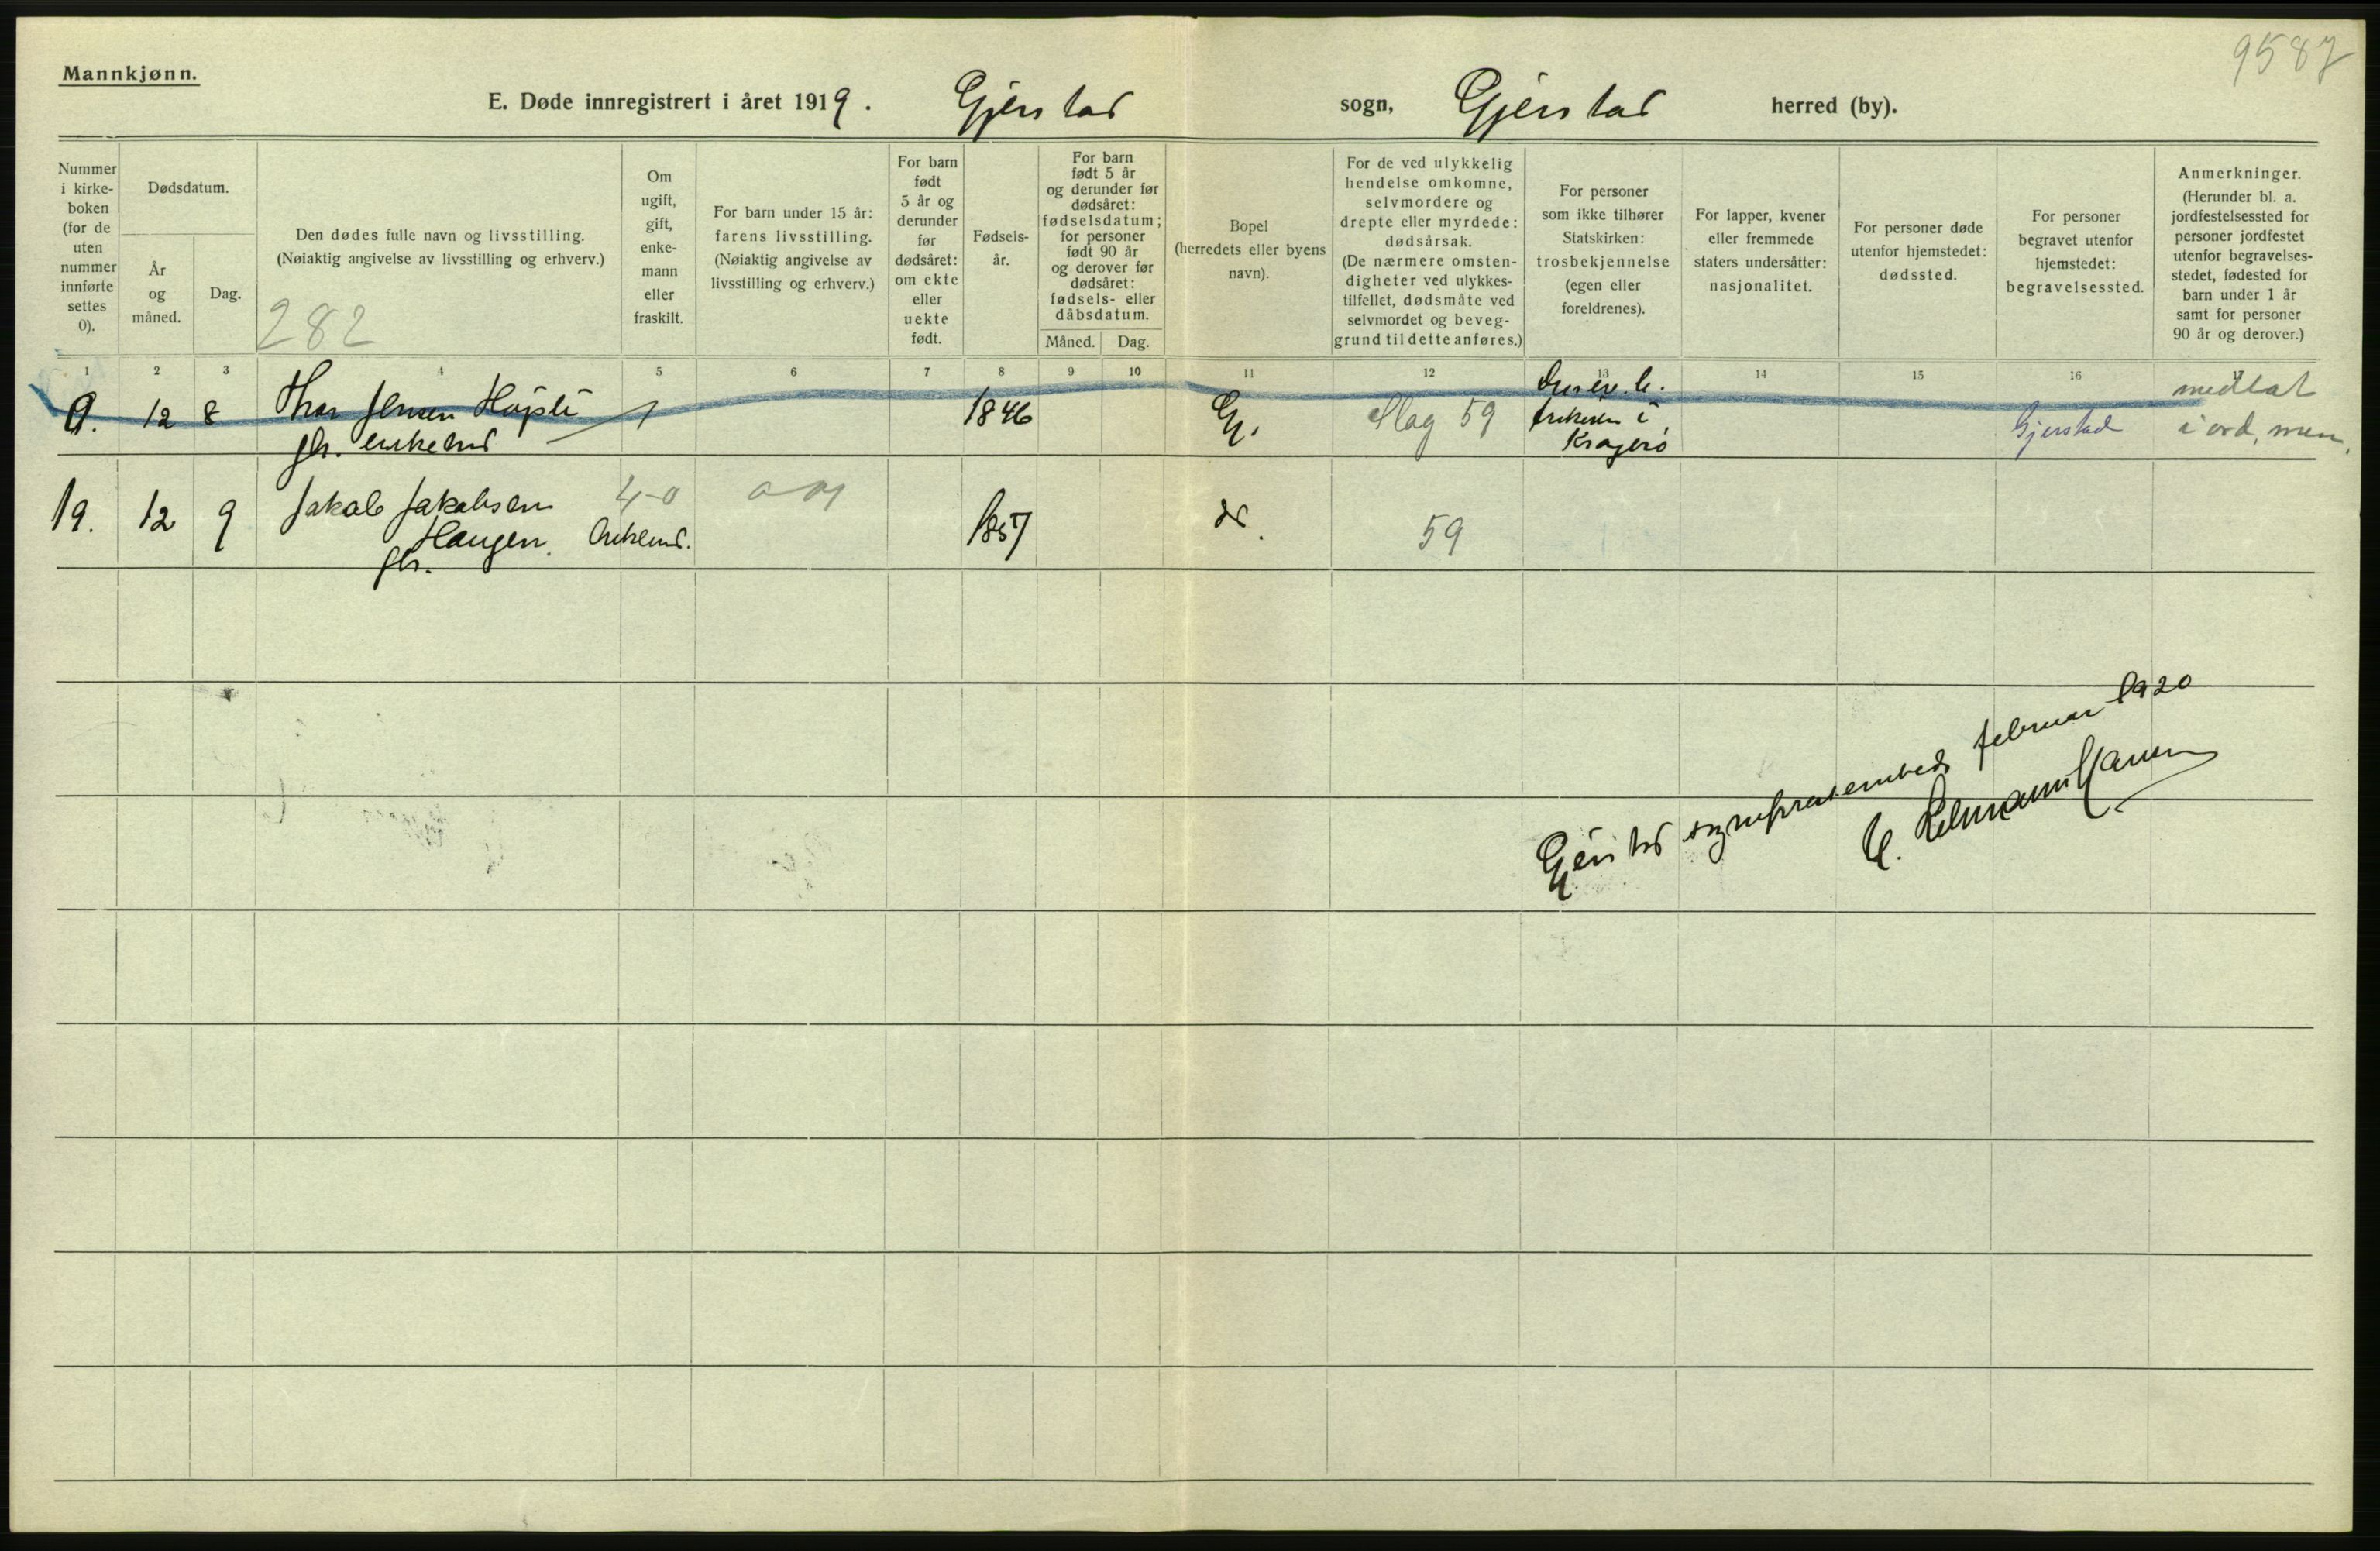 9587
Mannkjønn.
E. Døde innregistrert i året 1919. Gjerstad sogn, Gjerstad herred (by).
Nummer i kirke- boken (for de uten nummer innførte settes 0).
Dødsdatum.
År og måned.
Dag.
Den dødes fulle navn og livsstilling.
(Nøiaktig angivelse av livsstilling og erhverv.)
282
Om ugift, gift, enke- mann eller fraskilt.
For barn under 15 år: farens livsstilling.
(Nøiaktig angivelse av livsstilling og erhverv.)
For barn født 5 år og derunder før dødsåret: om ekte eller uekte født.
Fødsels- år.
For barn født 5 år og derunder før dødsåret: fødselsdatum; for personer født 90 år og derover før dødsåret: fødsels- eller dåbsdatum.
Måned. Dag.
Bopel (herredets eller byens navn).
For de ved ulykkelig hendelse omkomne, selvmordere og drepte eller myrdede: dødsårsak.
(De nærmere omsten- digheter ved ulykkes- tilfellet, dødsmåte ved selvmordet og beveg- grund til dette anføres.)
For personer som ikke tilhører Statskirken: trosbekjennelse (egen eller foreldrenes).
For lapper, kvener eller fremmede staters undersåtter: nasjonalitet.
For personer døde utenfor hjemstedet: dødssted.
For personer begravet utenfor hjemstedet: begravelsessted.
Anmerkninger.
(Herunder bl. a. jordfestelsessted for personer jordfestet utenfor begravelses- stedet, fødested for barn under 1 år samt for personer 90 år og derover.)
1 2 3 4 5 6 7 8 9 10 11 12 13 14 15 16
0. 12 8 Jensen 1846 Gj. Slag 59 i Kragerø Gjerstad medtat i ord, men
gbr. enkemd
19. 12 9 Jakob Jakobsen 4-0 1857 do. 59
Haugen. Enkemd.
gbr.
Gjerstad sogneprestembede februar 1920